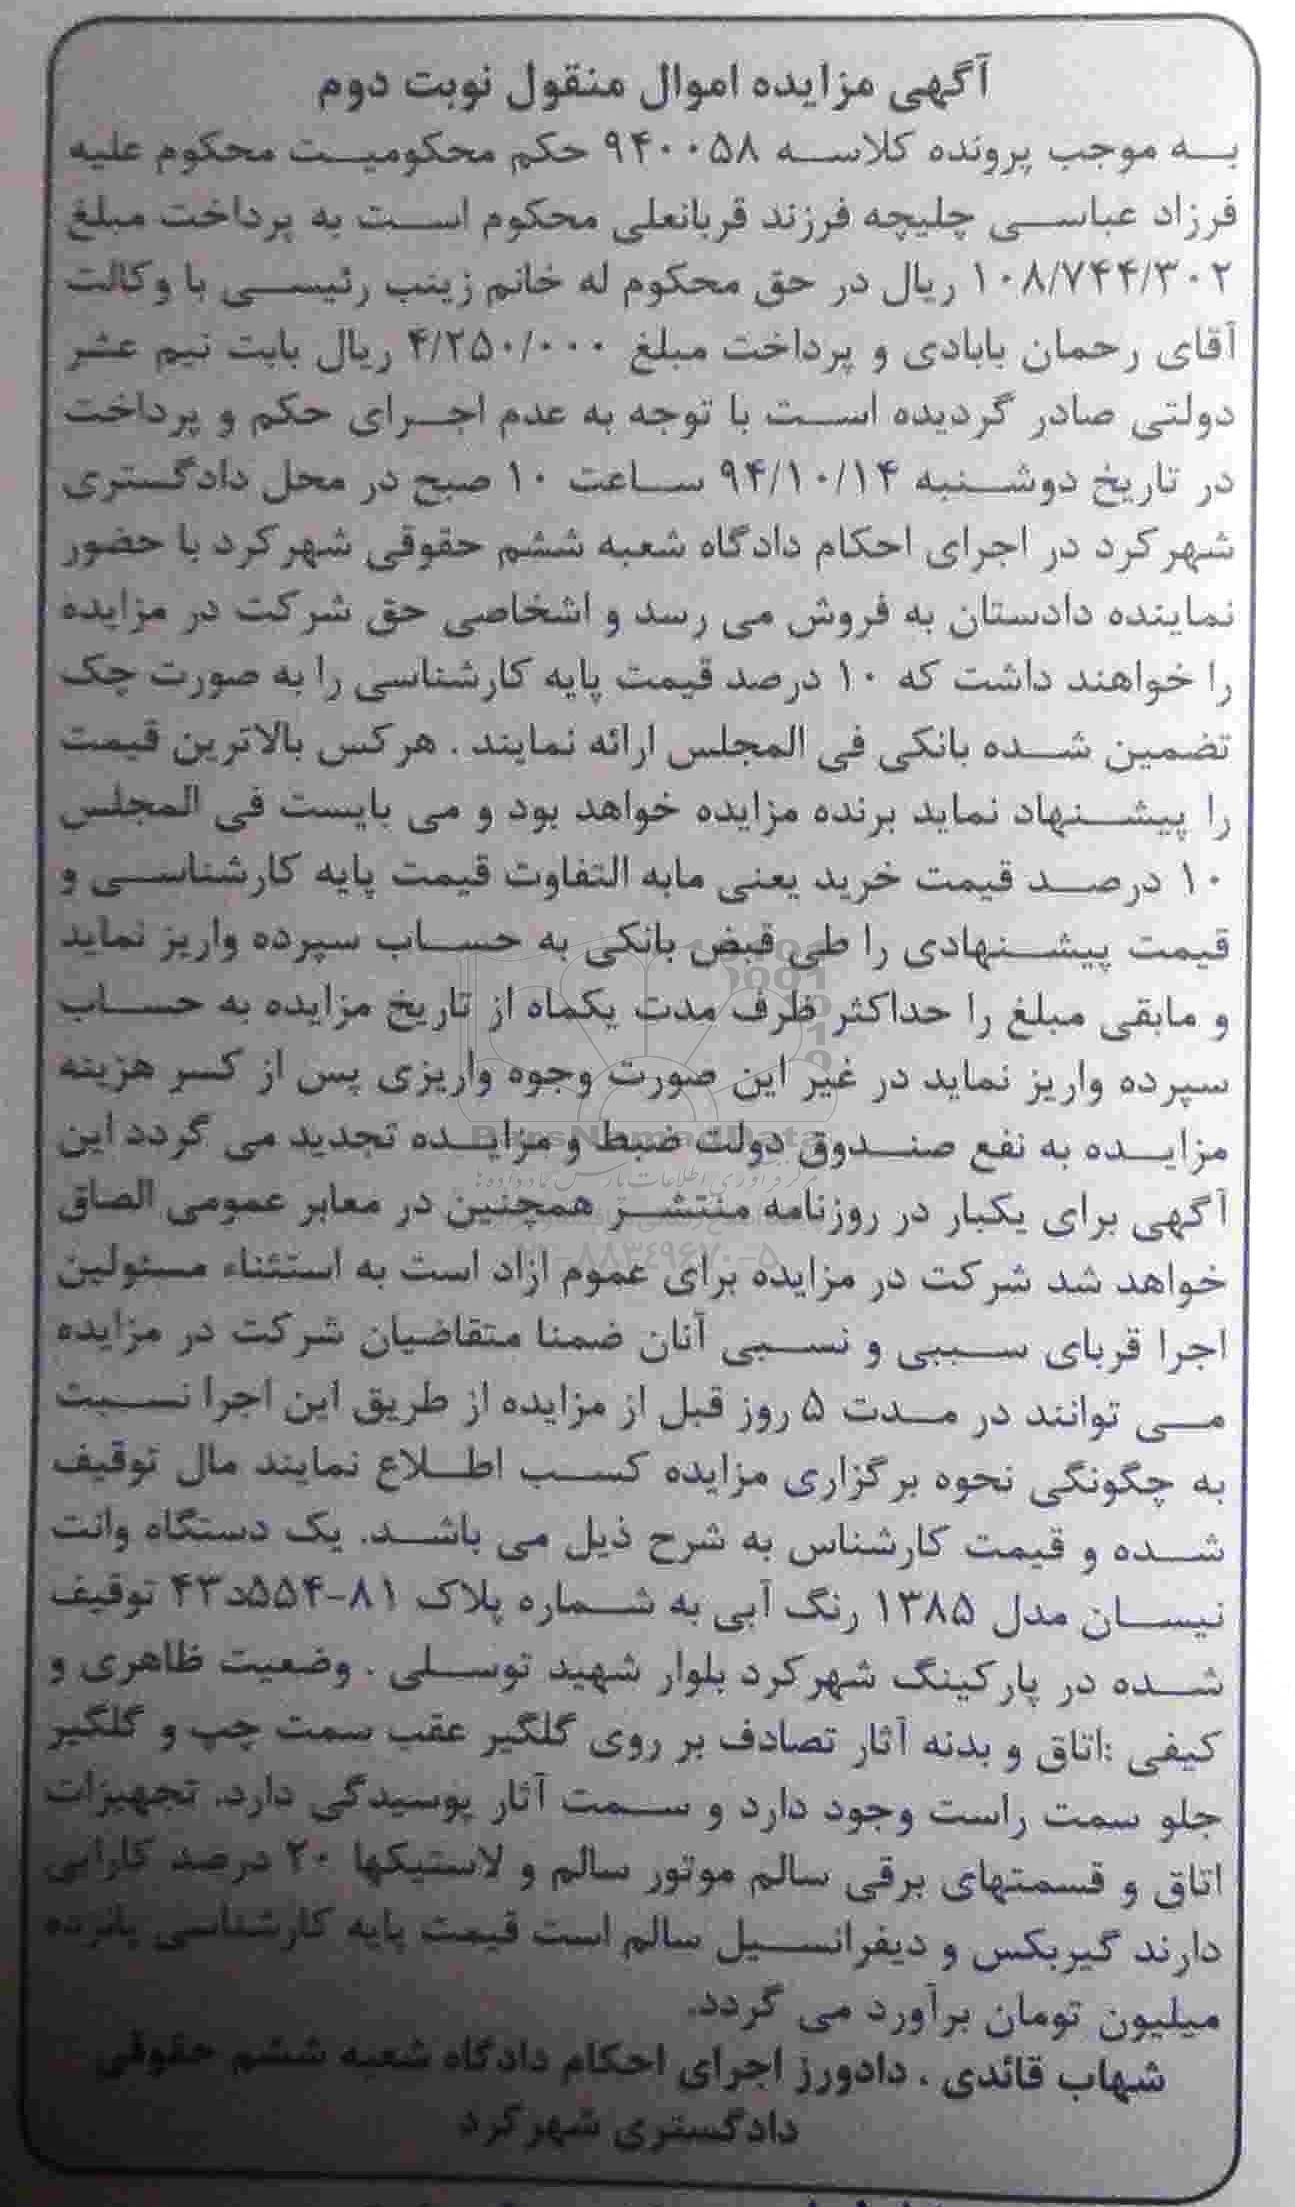 آگهی مزایده اموال منقول نوبت دوم
به موجب پرونده کلاسه ۹۴۰۰۵۸ حکم محکومیت محکوم علیه
فرزاد عباسی چلیچه فرزند قربانعلی محکوم است به پرداخت مبلغ
۱۰۸/۷۴۴/۳۰۲ ریال در حق محکوم له خانم زینب رئیسی با وکالت
آقای رحمان بابادی و پرداخت مبلغ ۴/۲۵۰/۰۰۰ ریال بابت نیم عشر
دولتی صادر گردیده است با توجه به عدم اجرای حکم و پرداخت
در تاریخ دوشنبه ۹۴/۱۰/۱۴ ساعت ۱۰ صبح در محل دادگستری
شهرکرد در اجرای احکام دادگاه شعبه ششم حقوقی شهرکرد با حضور
نماینده دادستان به فروش می رسد و اشخاصی حق شرکت در مزایده
را خواهند داشت که ۱۰ درصد قیمت پایه کارشناسی را به صورت چک
تضمین شده بانکی فی المجلس ارائه نمایند . هرکس بالاترین قیمت
را پیشنهاد نماید برنده مزایده خواهد بود و می بایست فی المجلس
۱۰ درصد قیمت خرید یعنی مابه التفاوت قیمت پایه کارشناسی و
قیمت پیشنهادی را طی قبض بانکی به حساب سپرده واریز نماید
و مابقی مبلغ را حداکثر ظرف مدت یکماه از تاریخ مزایده به حساب
سپرده واریز نماید در غیر این صورت وجوه واریزی پس از کسر هزینه
مزایده به نفع صندوق دولت ضبط و مزایده تجدید می گردد این
آگهی برای یکبار در روزنامه منتشر همچنین در معابر عمومی الصاق
خواهد شد شرکت در مزایده برای عموم ازاد است به استثناء مسئولین
اجرا قربای سببی و نسبی آنان ضمنا متقاضیان شرکت در مزایده
می توانند در مدت ۵ روز قبل از مزایده از طریق این اجرا نسبت
به چگونگی نحوه برگزاری مزایده کسب اطلاع نمایند مال توقیف
شده و قیمت کارشناس به شرح ذیل می باشد. یک دستگاه وانت
نیسان مدل ۱۳۸۵ رنگ آبی به شماره پلاک ۸۱-۵۵۴د۴۳ توقیف
شده در پارکینگ شهرکرد بلوار شهید توسلی . وضعیت ظاهری و
کیفی :اتاق و بدنه آثار تصادف بر روی گلگیر عقب سمت چپ و گلگیر
جلو سمت راست وجود دارد و سمت آثار پوسیدگی دارد. تجهیزات
اتاق و قسمتهای برقی سالم موتور سالم و لاستیکها ۲۰ درصد کارایی
دارند گیربکس و دیفرانسیل سالم است قیمت پایه کارشناسی پانزده
میلیون تومان برآورد می گردد.
شهاب قائدی . دادورز اجرای احکام دادگاه شعبه ششم حقوقی
دادگستری شهرکرد